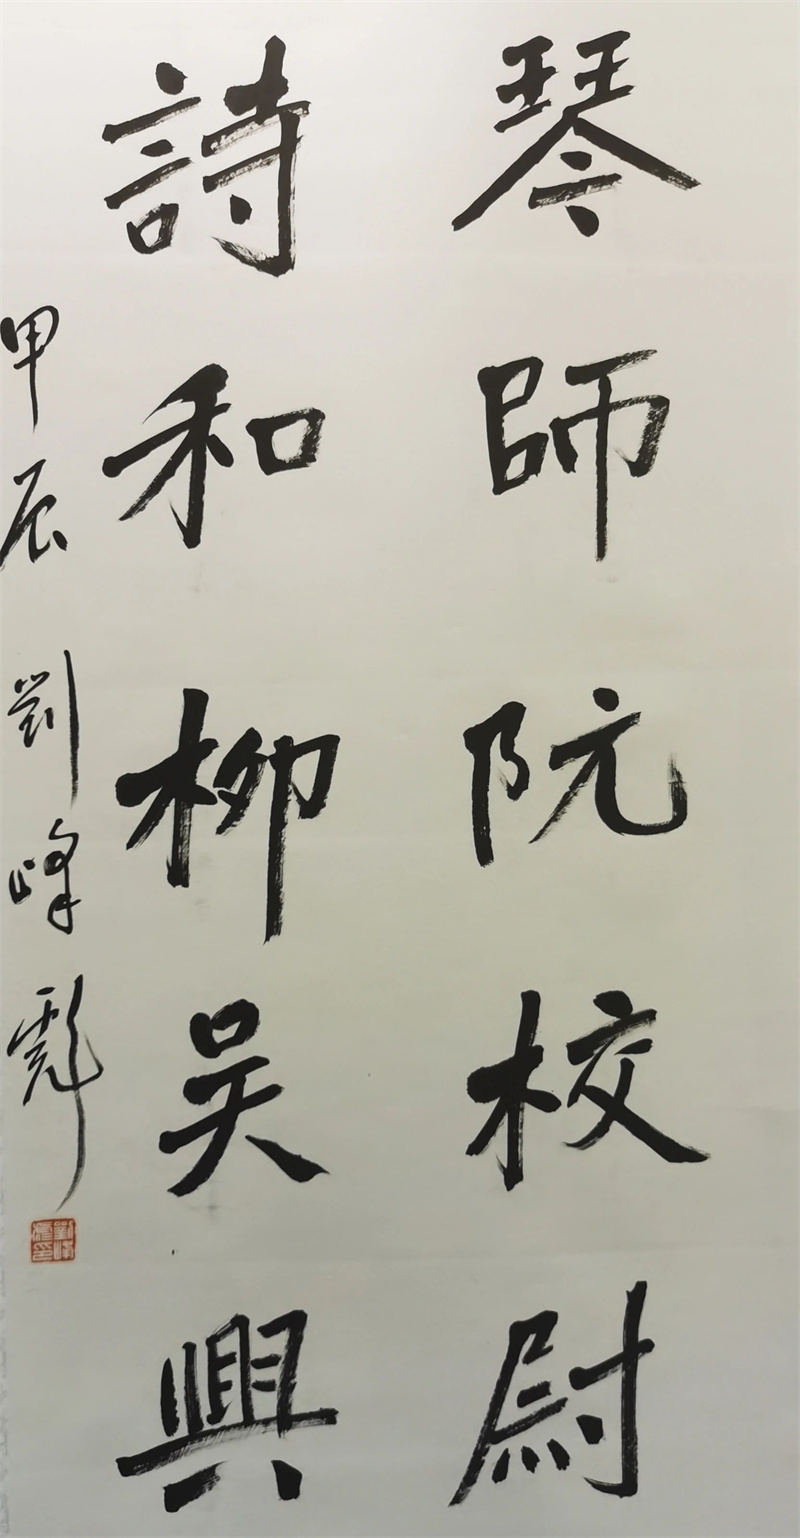 琴師阮校尉
詩和柳吴興
甲辰 劉峰彪